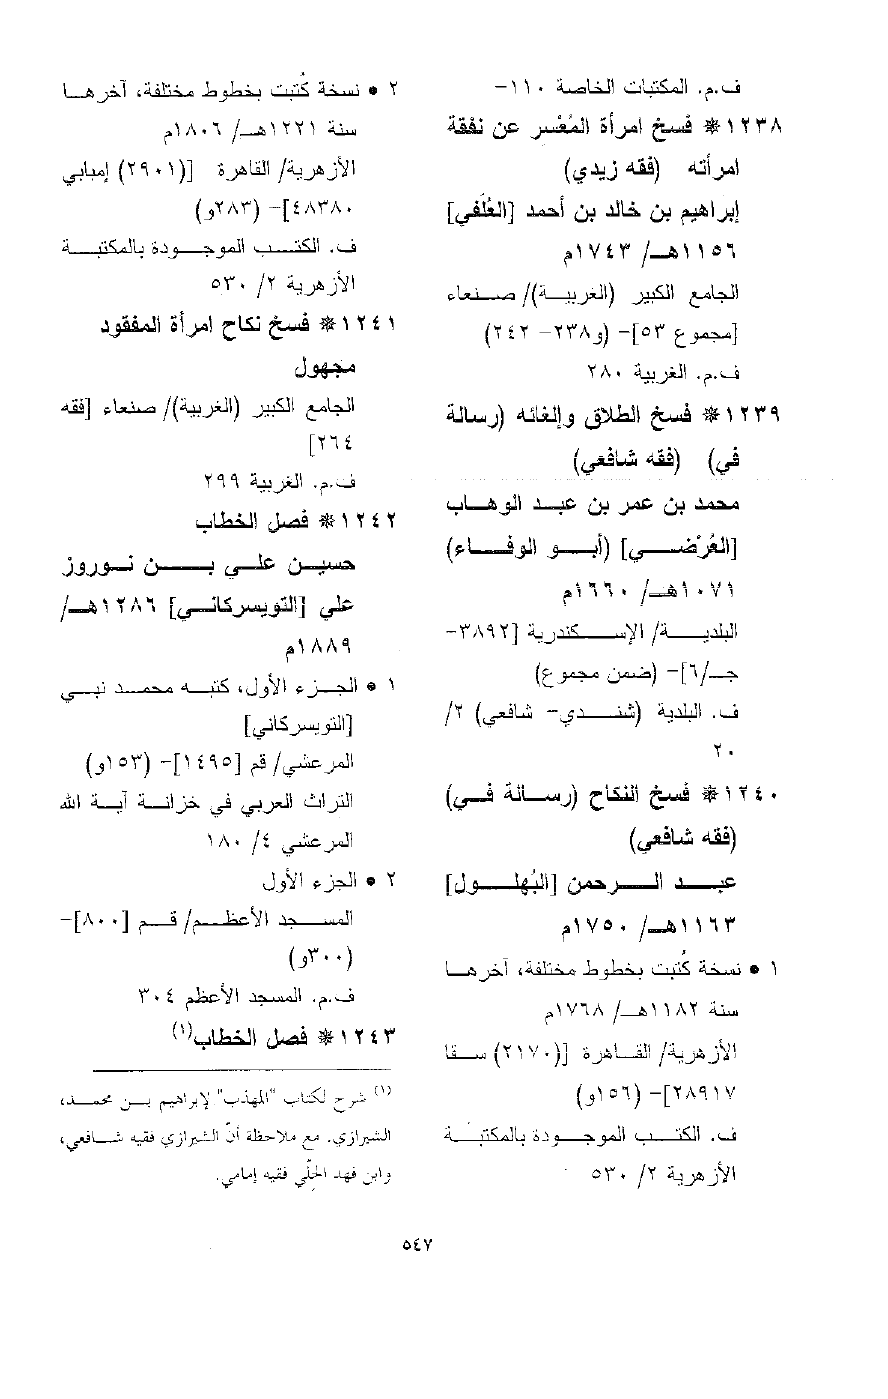 ف.م. المكتبات الخاصة ١١٠-
١٢٣٨ * فسخ امرأة المُعْسر عن نفقة
امرأته (فقه زيدي)
إبراهيم بن خالد بن أحمد [العُلَفي]
١١٥٦هـ/ ١٧٤٣م
الجامع الكبير (الغربية)/ صنعاء
[مجموع ٥٣]- (و٢٣٨- ٢٤٢)
ف.م. الغربية ٢٨٠
١٢٣٩ * فسخ الطلاق وإلغائه (رسالة
في) (فقه شافعي)
محمد بن عمر بن عبد الوهاب
[العُرْضي] (أبو الوفاء)
١٠٧١هـ/ ١٦٦٠م
البلدية/ الإسكندرية [٣٨٩٢-
جـ/٦]- (ضمن مجموع)
ف. البلدية (شندي- شافعي) ٢/
٢٠
١٢٤٠ * فسخ النكاح (رسالة في)
(فقه شافعي)
عبد الرحمن [البُهلول]
١١٦٣هـ/ ١٧٥٠م
١ • نسخة كُتبت بخطوط مختلفة، آخرها
سنة ١١٨٢هـ/ ١٧٦٨م
الأزهرية/ القاهرة [(٢١٧٠) سقا
٢٨٩١٧]- (١٥٦و)
ف. الكتب الموجودة بالمكتبة
الأزهرية ٢/ ٥٣٠
٢ • نسخة كُتبت بخطوط مختلفة، آخرها
سنة ١٢٢١هـ/ ١٨٠٦م
الأزهرية/ القاهرة [(٢٩٠١) إمبابي
٤٨٣٨٠]- (٢٨٣و)
ف. الكتب الموجودة بالمكتبة
الأزهرية ٢/ ٥٣٠
١٢٤١ * فسخ نكاح امرأة المفقود
مجهول
الجامع الكبير (الغربية)/ صنعاء [فقه
٢٦٤]
ف.م. الغربية ٢٩٩
١٢٤٢ * فصل الخطاب
حسين علي بن نوروز
علي [التويسركاني] ١٢٨٦هـ/
١٨٨٩م
١ • الجزء الأول، كتبه محمد نبي
[التويسركاني]
المرعشي/ قم [١٤٩٥]- (١٥٣و)
التراث العربي في خزانة آية الله
المرعشي ٤/ ١٨٠
٢ • الجزء الأول
المسجد الأعظم/ قم [٨٠٠]-
(٣٠٠و)
ف.م. المسجد الأعظم ٣٠٤
١٢٤٣ * فصل الخطاب(١)
(١) شرح لكتاب "المهذب" لإبراهيم بن محمد،
الشيرازي. مع ملاحظة أنّ الشيرازي فقيه شافعي،
وابن فهد الحِلّي فقيه إمامي.
٥٤٧